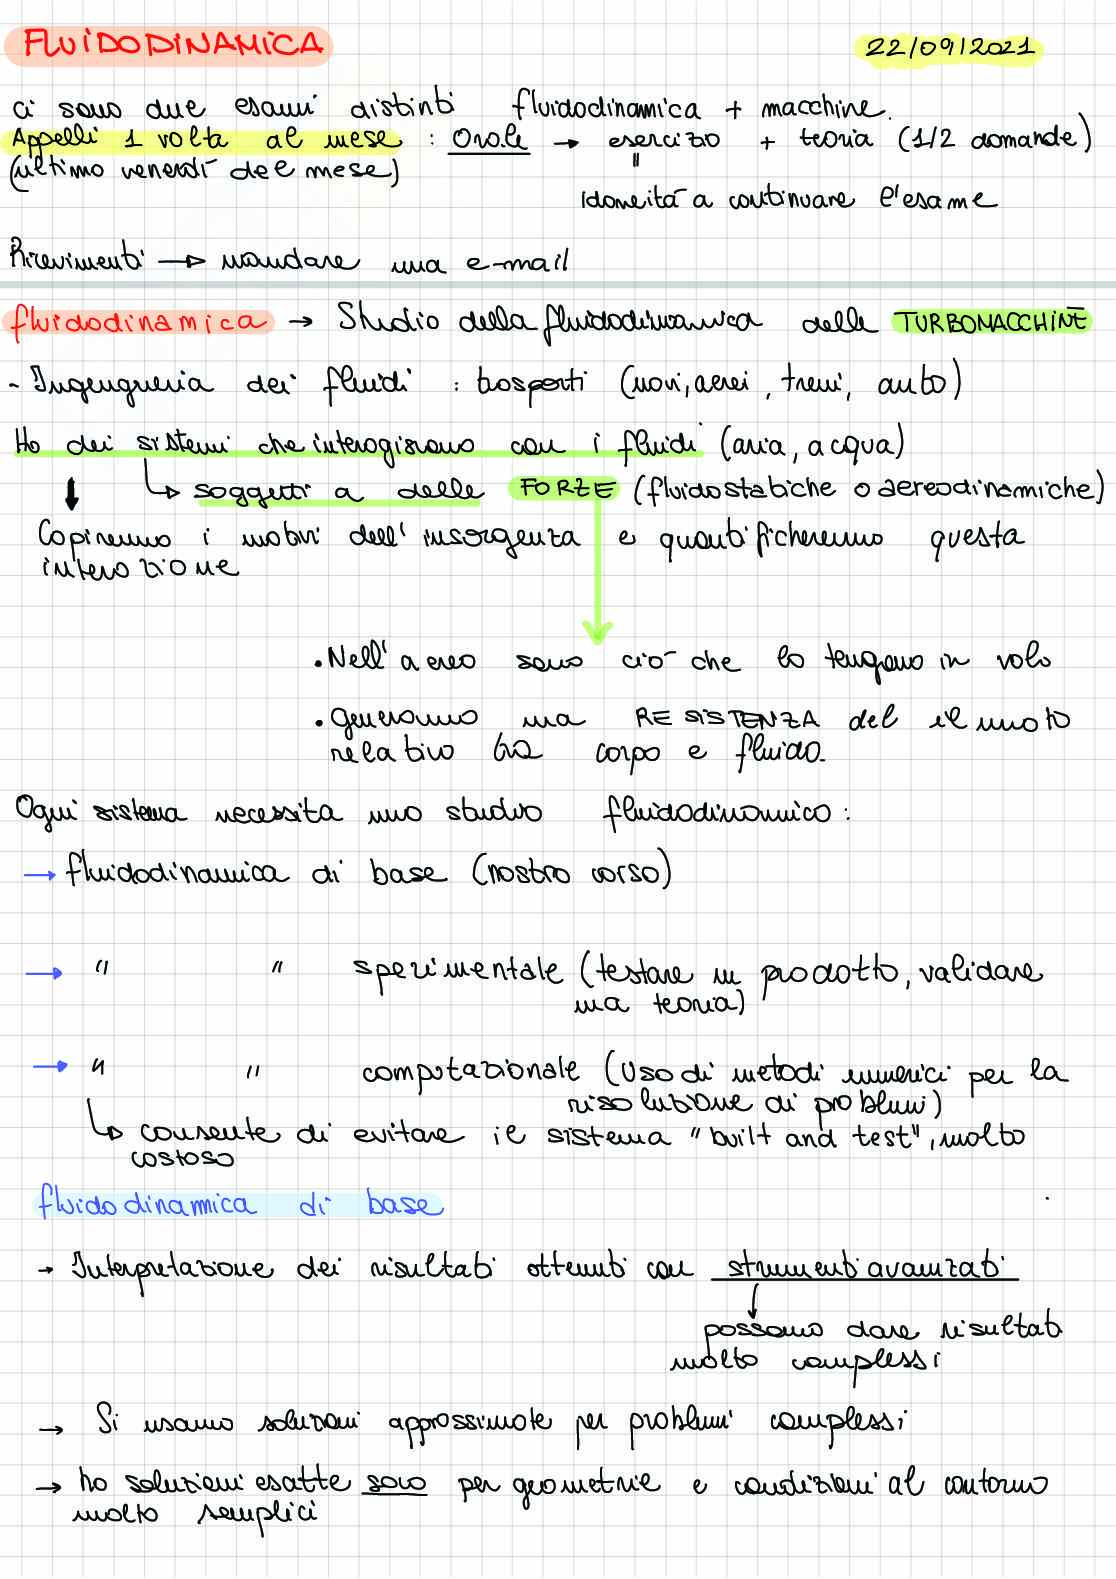 FLUIDODINAMICA 22/09/2021
ci sono due esami distinti fluidodinamica + macchine.
Appelli 1 volta al mese : Orale → esercizio + teoria (1/2 domande)
(ultimo venerdì del mese) "
Idoneità a continuare l'esame
Ricevimenti → mandare una e-mail
fluidodinamica → Studio della fluidodinamica delle TURBOMACCHINE
- Ingegneria dei fluidi : trasporti (navi, aerei, treni, auto)
Ho dei sistemi che interagiscono con i fluidi (aria, acqua)
↓ ↳ soggetti a delle FORZE (fluidostatiche o aereodinamiche)
Capiremo i motivi dell'insorgenza e quantificheremo questa
interazione
• Nell'aereo sono ciò che lo tengono in volo
• generano una RESISTENZA del il moto
relativo tra corpo e fluido.
Ogni sistema necessita uno studio fluidodinamico :
→ fluidodinamica di base (nostro corso)
→ " " sperimentale (testare un prodotto, validare
una teoria)
→ " " computazionale (Uso di metodi numerici per la
risoluzione di problemi)
↳ consente di evitare il sistema "built and test", molto
costoso
fluidodinamica di base
→ Interpretazione dei risultati ottenuti con strumenti avanzati
↓
possono dare risultati
molto complessi
→ Si usano soluzioni approssimate per problemi complessi
→ ho soluzioni esatte solo per geometrie e condizioni al contorno
molto semplici